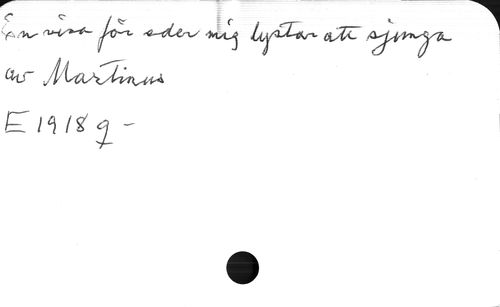 En visa för eder mig lystar att sjunga
av Martinus
E 1918 q -